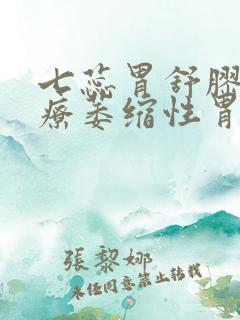 七蕊胃舒膠
療萎缩性胃
張黎娜
未经同意禁止转载